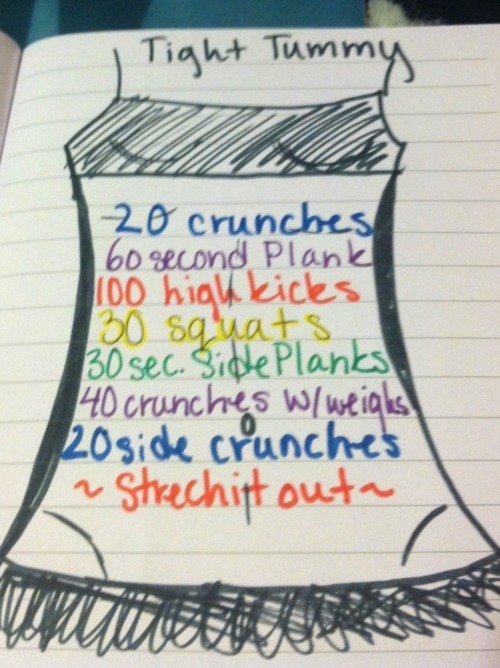 Tight Tummy
20 crunches
60 second Plank
100 high kicks
30 squats
30 sec. Side Planks
40 crunches w/weighs
20 side crunches
~ Strech it out ~